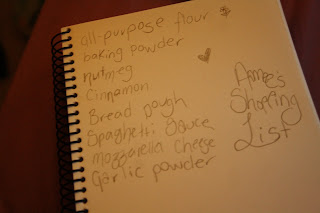 all-purpose flour
baking powder
nutmeg
Cinnamon
Bread Dough
Spaghetti Sauce
mozzarella cheese
Garlic powder
Anne's
Shopping
List